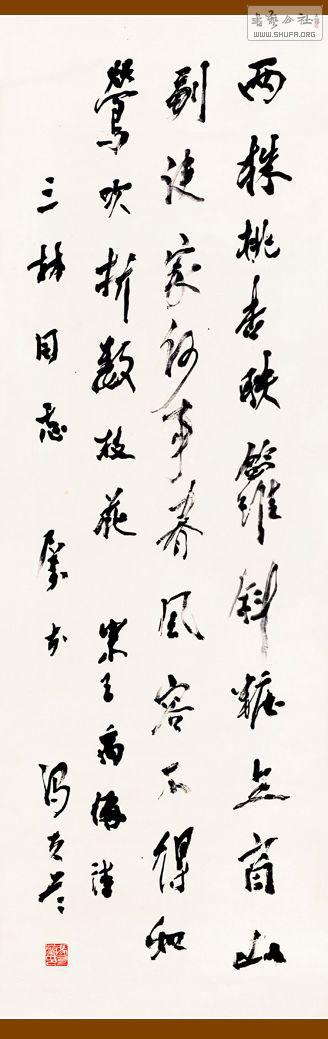 書藝公社
WWW.SHUFA.ORG
两株桃杏映籬斜糚点商山
副使家何事春风容不得和
鶯吹折数枝花 宋王禹偁诗
三林同志 属书 冯